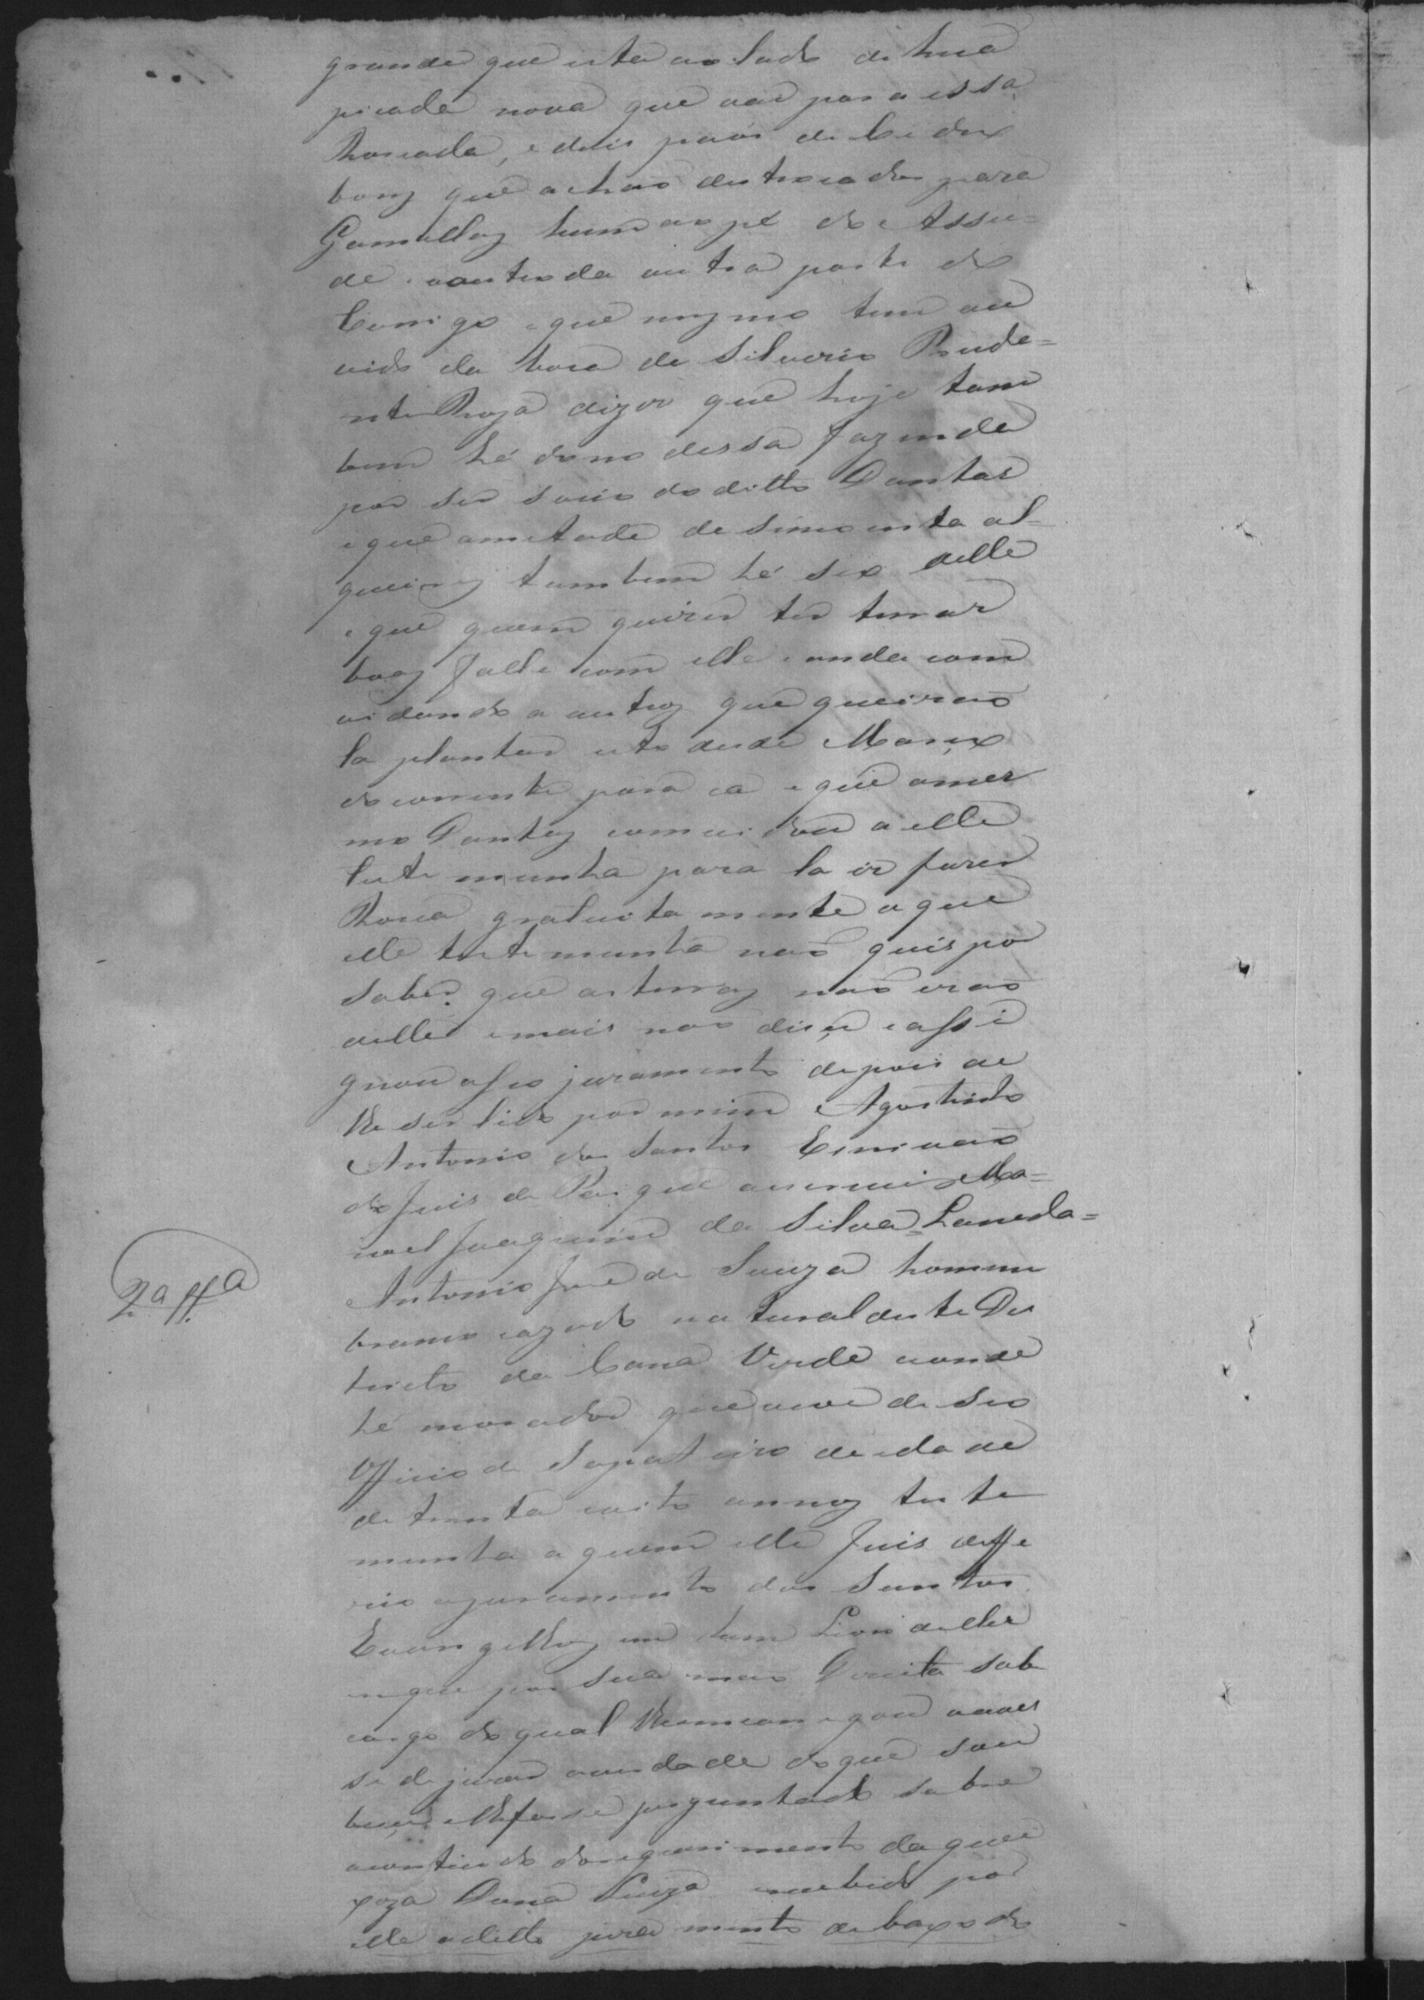 grande que esta ao lado di hua
picada nova que vai para essa
Rossada, e dois paos de Cedro
bons que achao destrocados para
Gamellas hum ao pé do Assu=
de e outro da outra parte do
Corrigo e que mesmo tem ou
vido da boca de Silverio Prude=
nte dizer que hoje tam
bem hé dono dessa fazenda
por ser socio do ditto Dantas
e que ametade de simcoenta al=
queires tambem hé seo delle
e que quem quizer ter terras
boas falle com elle e anda com
vidando a outros que queirao
la plantar isto desde Março
do corrente para ca e que o mes
mo Dantas comvidou a elle
testemunha para la ir fazer
Rossa gratuitamente o que
elle testemunha nao quis por
saber que as terras nao erao
delle e mais nao disse e assi
gnou o seo juramento depois de
lhe ser lido por mim Agostinho
Antonio dos Santos Escrivao
do Juis de Pas que escrevi Ma=
noel Joaquim da Silva=Lacerda=
2ª tta
Antonio José de Souza homem
branco cazado natural deste Des
tricto da Cana Verde aonde
hé morador que vive de seo
Officio de Sapateiro de idade
de trinta e oito annos teste
munha a quem elle Juis deffe
rio o juramento dos Santos
Evangelhos em hum Livro delles
em que pos sua mao Direita sob
cargo do qual lhe emcarregou
se dizer a verdade do que sou
besse e lhe fosse preguntado sobre
o contiudo do requerimento da quei
xoza Dona Luiza e recebido por
elle o ditto juramento debaxo do